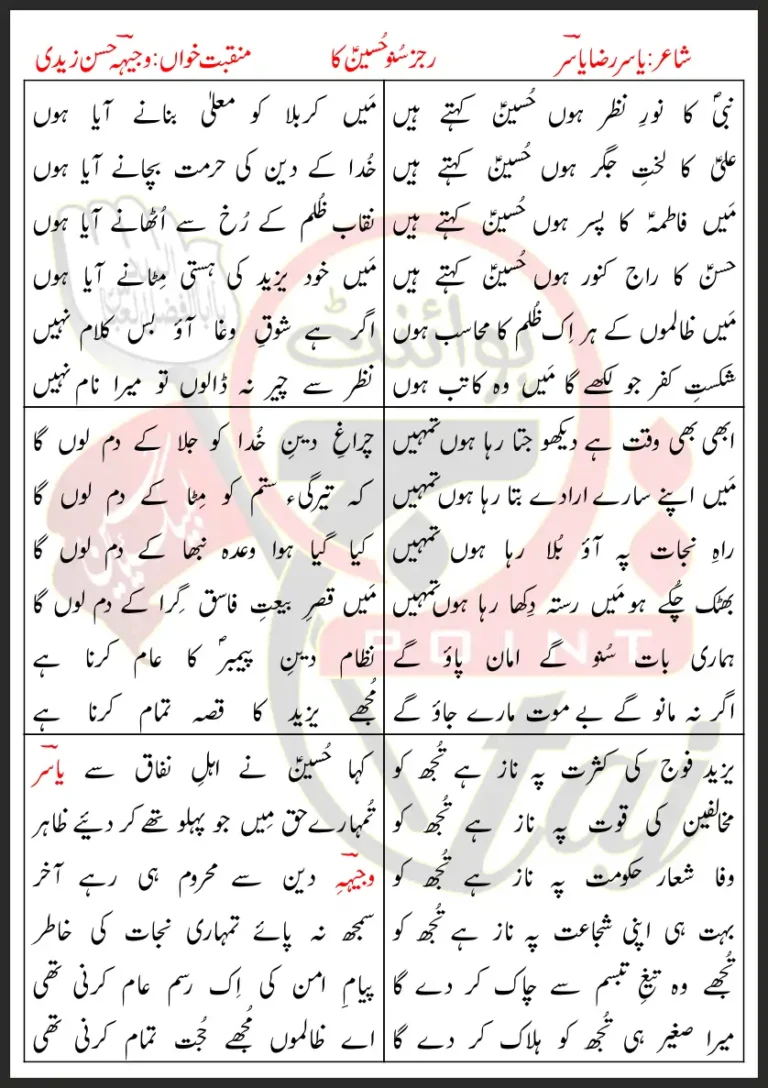 شاعر: یاسر رضا یاسرؔ
رجز سُنو حُسینؑ کا
منقبت خواں: وجیہہؔ حسن زیدی
نبیؐ کا نورِ نظر ہوں حُسینؑ کہتے ہیں
علیؑ کا لختِ جگر ہوں حُسینؑ کہتے ہیں
مَیں فاطمہؑ کا پسر ہوں حُسینؑ کہتے ہیں
حسنؑ کا راج کنور ہوں حُسینؑ کہتے ہیں
مَیں ظالموں کے ہر اِک ظُلم کا محاسب ہوں
شکستِ کفر جو لکھے گا مَیں وہ کاتب ہوں
مَیں کربلا کو معلیٰ بنانے آیا ہوں
خُدا کے دین کی حرمت بچانے آیا ہوں
نقاب ظُلم کے رُخ سے اُٹھانے آیا ہوں
مَیں خود یزید کی ہستی مِٹانے آیا ہوں
اگر ہے شوقِ وغا آؤ بس کلام نہیں
نظر سے چیر نہ ڈالوں تو میرا نام نہیں
ابھی بھی وقت ہے دیکھو جتا رہا ہوں تمہیں
مَیں اپنے سارے ارادے بتا رہا ہوں تمہیں
راہِ نجات پہ آؤ بُلا رہا ہوں تمہیں
بھٹک چُکے ہو مَیں رستہ دِکھا رہا ہوں تمہیں
ہماری بات سُنو گے امان پاؤ گے
اگر نہ مانو گے بے موت مارے جاؤ گے
چراغِ دینِ خُدا کو جلا کے دم لوں گا
کہ تیرگیٔ ستم کو مِٹا کے دم لوں گا
کیا گیا ہوا وعدہ نبھا کے دم لوں گا
مَیں قصرِ بیعتِ فاسق گِرا کے دم لوں گا
نظام دینِ پیمبرؐ کا عام کرنا ہے
مُجھے یزید کا قصہ تمام کرنا ہے
یزید فوج کی کثرت پہ ناز ہے تُجھ کو
مخالفین کی قوت پہ ناز ہے تُجھ کو
وفا شعار حکومت پہ ناز ہے تُجھ کو
بہت ہی اپنی شجاعت پہ ناز ہے تُجھ کو
تُجھے وہ تیغِ تبسم سے چاک کر دے گا
میرا صغیر ہی تُجھ کو ہلاک کر دے گا
کہا حُسینؑ نے اہلِ نفاق سے یاسرؔ
تُمہارے حق مِیں جو پہلو تھے کر دئیے ظاہر
وجیہہؔ دین سے محروم ہی رہے آخر
سمجھ نہ پائے تمہاری نجات کی خاطر
پیامِ امن کی اِک رسم عام کرنی تھی
اے ظالموں مُجھے حُجت تمام کرنی تھی
پوائنٹ
POINT
taj